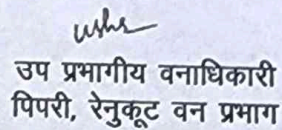 उप प्रभागीय वनाधिकारी
पिपरी, रेनुकूट वन प्रभाग